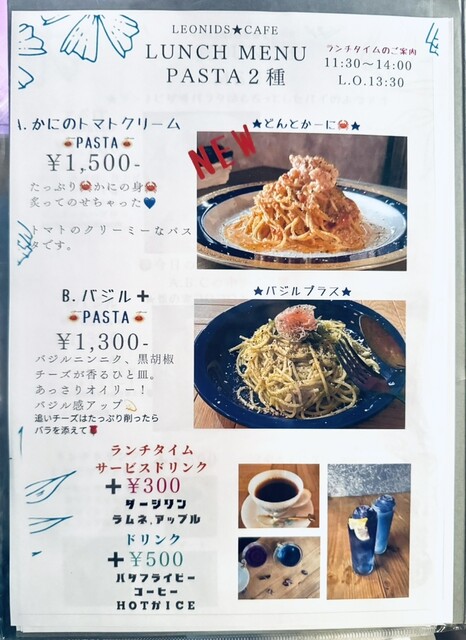 LEONIDS★CAFE
LUNCH MENU
PASTA２種
ランチタイムのご案内
11:30～14:00
L.O.13:30
A. かにのトマトクリーム
PASTA
¥1,500-
たっぷり🦀かにの身🦀
炙ってのせちゃった💙
トマトのクリーミーなパス
タです。
★どんとかーに🦀★
NEW
B. バジル＋
PASTA
¥1,300-
バジルニンニク、黒胡椒
チーズが香るひと皿。
あっさりオイリー！
バジル感アップ💫
追いチーズはたっぷり削ったら
バラを添えて🌹
★バジルプラス★
ランチタイム
サービスドリンク
＋¥300
ダージリン
ラムネ、アップル
ドリンク
＋¥500
バタフライピー
コーヒー
HOTかICE